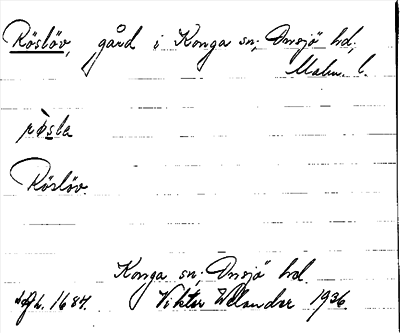 Röslöv, gård i Konga sn; Onsjö hd;
Malm. l.
rò̀sla
Röslöv.
Konga sn; Onsjö hd.
1684. Viktor Welander 1936.